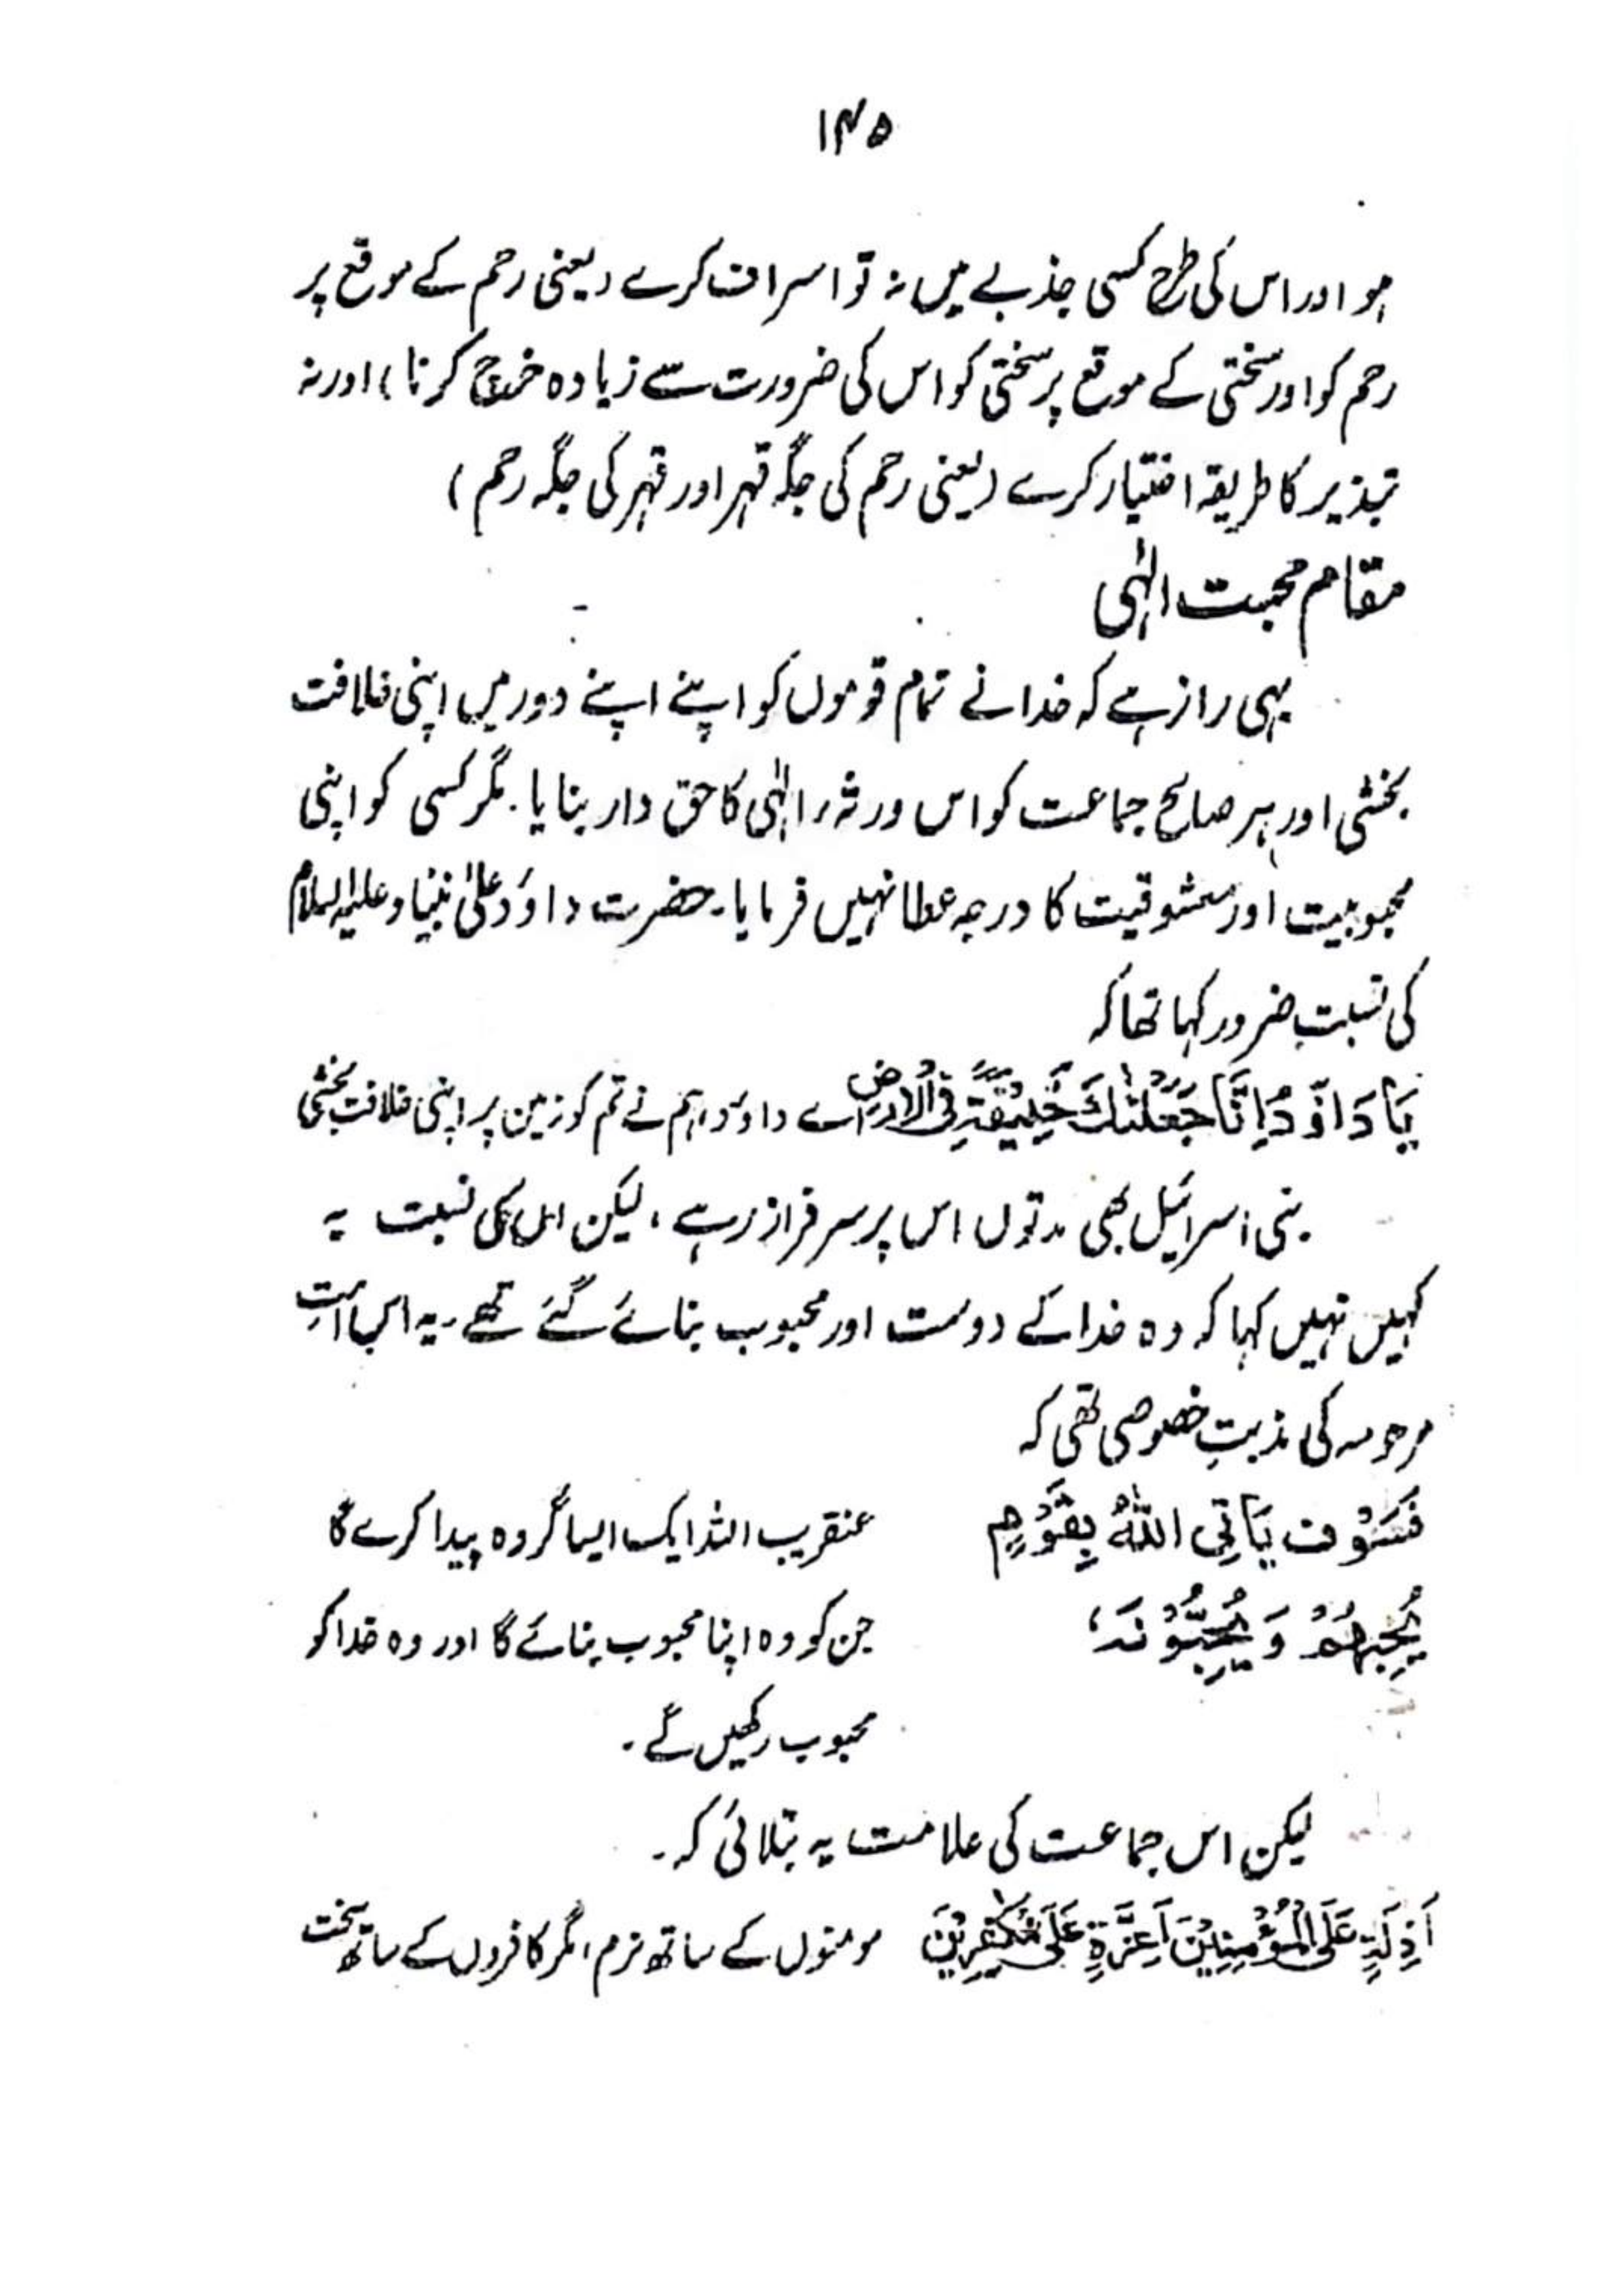 ۱۴۵
ہو اور اس کی طرح کسی جذبے میں نہ تو اسراف کرے (یعنی رحم کے موقع پر
رحم کو اور سختی کے موقع پر سختی کو اس کی ضرورت سے زیادہ خرچ کرنا) اور نہ
تبذیر کا طریقہ اختیار کرے (یعنی رحم کی جگہ قہر اور قہر کی جگہ رحم)
مقام محبت الٰہی
یہی راز ہے کہ خدا نے تمام قوموں کو اپنے اپنے دور میں اپنی خلافت
بخشی اور ہر صالح جماعت کو اس ورثہ الٰہی کا حق دار بنایا۔ مگر کسی کو اپنی
محبوبیت اور معشوقیت کا درجہ عطا نہیں فرمایا۔ حضرت داؤد علیٰ نبینا و علیہ السلام
کی نسبت ضرور کہا تھا کہ
یَا دَاوٗدُ اِنَّا جَعَلْنٰكَ خَلِیْفَةً فِی الْاَرْضِ اے داؤد ہم نے تم کو زمین پر اپنی خلافت بخشی
بنی اسرائیل بھی مدتوں اس پر سرفراز رہے، لیکن ان کی نسبت یہ
کہیں نہیں کہا کہ وہ خدا کے دوست اور محبوب بنائے گئے تھے۔ یہ اس امتِ
مرحومہ کی خصوصی تھی کہ
فَسَوْفَ یَاْتِی اللّٰهُ بِقَوْمٍ عنقریب اللہ ایک ایسا گروہ پیدا کرے گا
یُّحِبُّهُمْ وَ یُحِبُّوْنَهٗ، جن کو وہ اپنا محبوب بنائے گا اور وہ خدا کو
محبوب رکھیں گے۔
لیکن اس جماعت کی علامت یہ بتلائی کہ۔
اَذِلَّةٍ عَلَی الْمُؤْمِنِیْنَ اَعِزَّةٍ عَلَی الْكٰفِرِیْنَ مومنوں کے ساتھ نرم، مگر کافروں کے ساتھ سخت